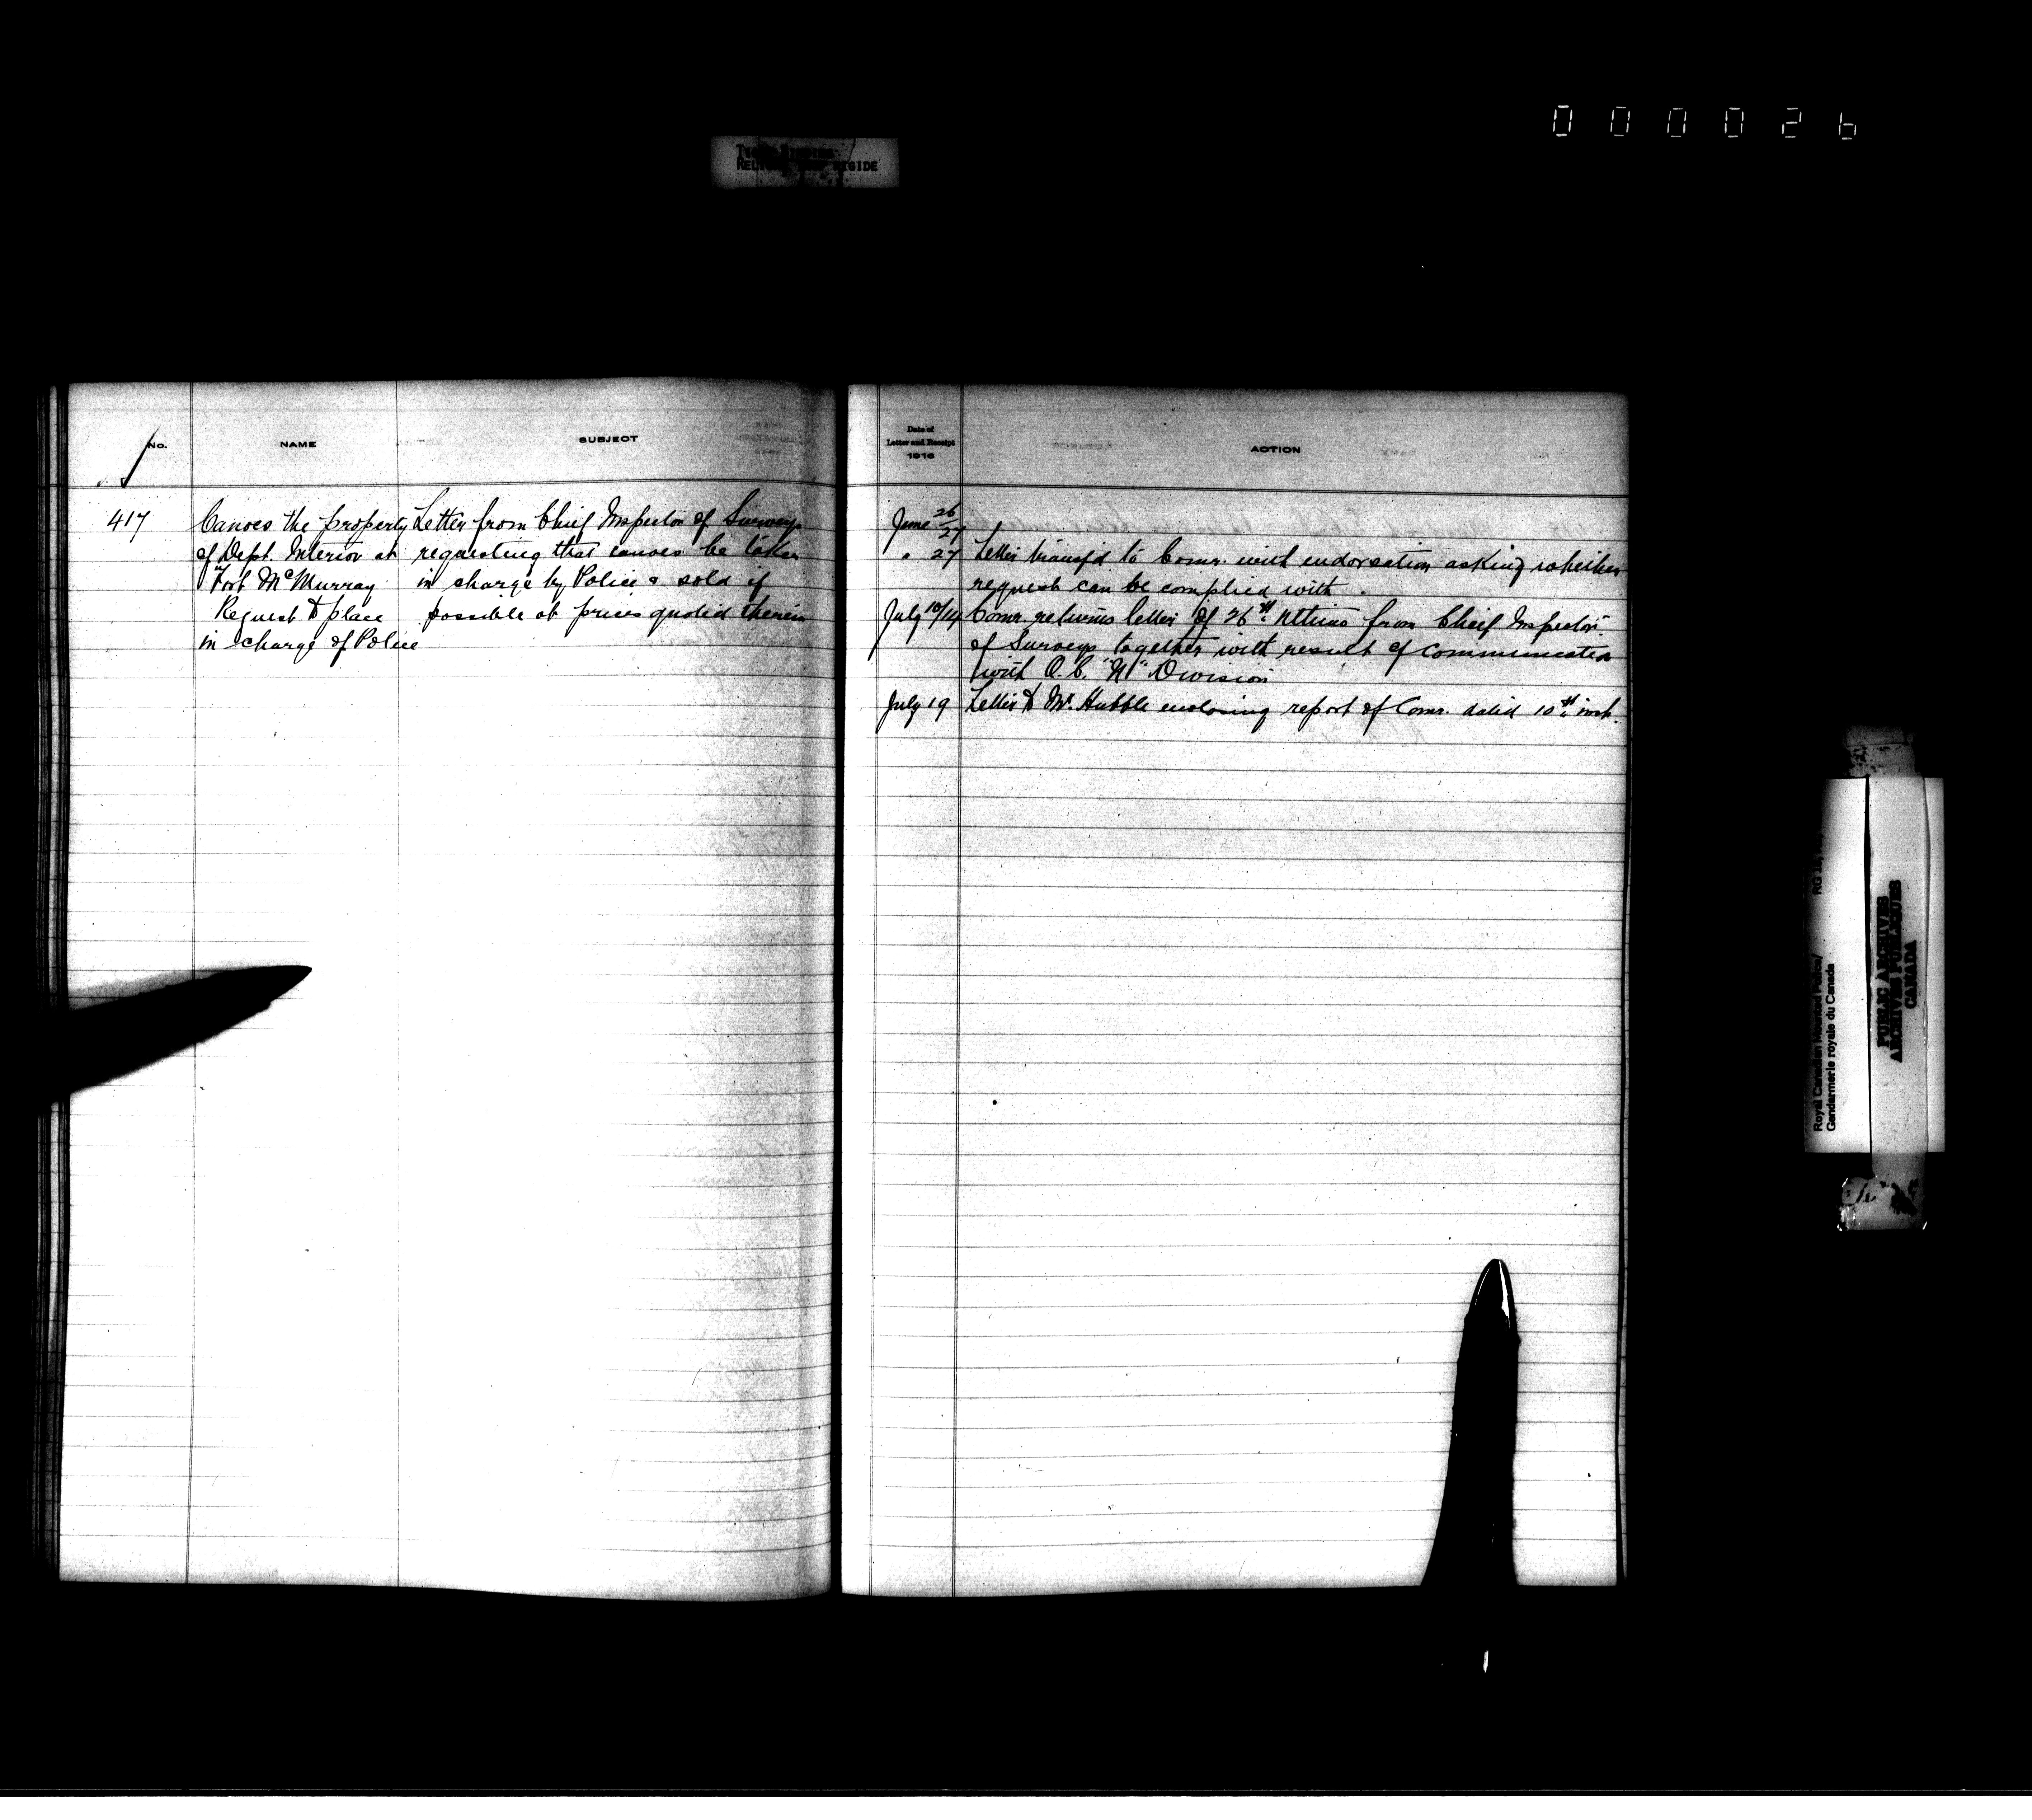 000026
No.
NAME
SUBJECT
417
Canoes the property
of Dept. Interior at
Fort McMurray
Request to place
in charge of Police
Letter from Chief Inspector of Surveys
requesting that canoes be taken
in charge by Police & sold if
possible at prices quoted therein
Date of
Letter and Receipt
1916
ACTION
June 26/27
" 27 Letter transf'd to Comr. with endorsation asking whether
request can be complied with.
July 10/14 Comr. returns letter of 26th ultimo from Chief Inspector
of Surveys together with result of communication
with O.C. "N" Division
July 19 Letter to Mr. Hubble enclosing report of Comr. dated 10th inst.
Royal Canadian Mounted Police/
Gendarmerie royale du Canada
RG
PUBLIC ARCHIVES
ARCHIVES PUBLIQUES
CANADA